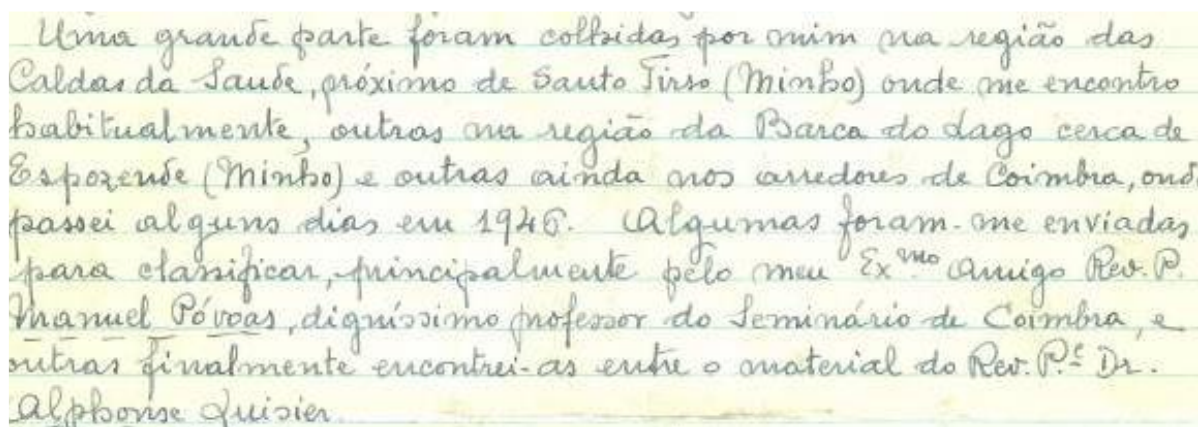 Uma grande parte foram colhidas por mim na região das
Caldas da Saude, próximo de Santo Tirso (Minho) onde me encontro
habitualmente, outras na região da Barca do Lago cerca de
Espozende (Minho) e outras ainda nos arredores de Coimbra, onde
passei alguns dias em 1946. Algumas foram-me enviadas
para classificar, principalmente pelo meu Ex.mo Amigo Rev. P.
Manuel Póvoas, digníssimo professor do Seminário de Coimbra, e
outras finalmente encontrei-as entre o material do Rev. P.e Dr.
Alphonse Luisier.